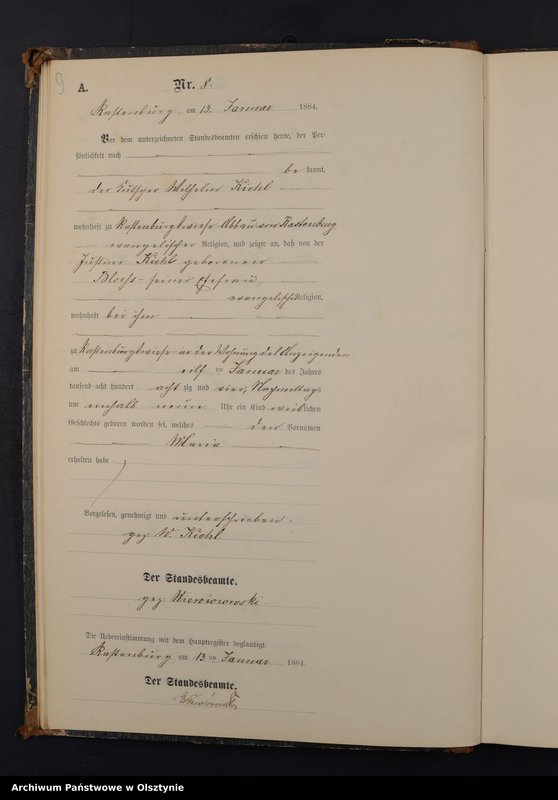 9
A.
Nr. 8.
Rastenburg, am 13. Januar 1884.
Vor dem unterzeichneten Standesbeamten erschien heute, der Per-
sönlichkeit nach
bekannt,
der Kutscher Wilhelm Kiehl
wohnhaft zu Rastenburgswiese Abbau von Rastenburg
evangelischer Religion, und zeigte an, daß von der
Justine Kiehl geborenen
seiner Ehefrau,
evangelischer Religion,
wohnhaft bei ihm
zu Rastenburgswiese in der Wohnung des Anzeigenden
am elf ten Januar des Jahres
tausend acht hundert achtzig und vier, Nachmittags
um einhalb neun Uhr ein Kind weiblichen
Geschlechts geboren worden sei, welches den Vornamen
Maria
erhalten habe
Vorgelesen, genehmigt und unterschrieben.
gez. W. Kiehl
Der Standesbeamte.
gez. Wiewiorowski.
Die Uebereinstimmung mit dem Hauptregister beglaubigt.
Rastenburg am 13 ten Januar 1884.
Der Standesbeamte.
Wiewiorowski
Archiwum Państwowe w Olsztynie